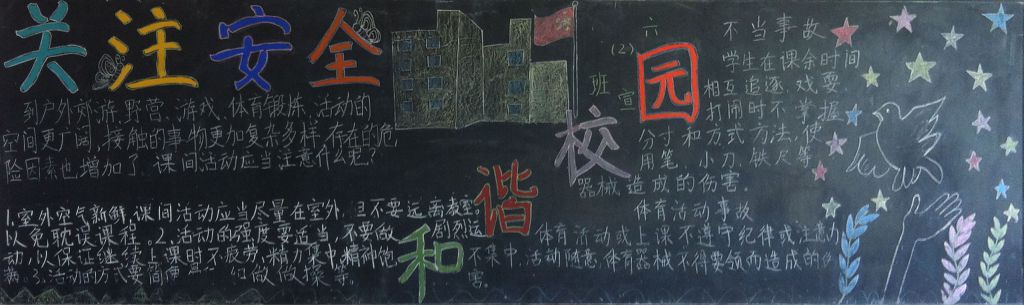 关注安全
到户外郊游、野营、游戏、体育锻炼、活动的
空间更广阔,接触的事物更加复杂多样,存在的危
险因素也增加了。课间活动应当注意什么呢?
1.室外空气新鲜,课间活动应当尽量在室外,且不要远离教室,
以免耽误课程。2.活动的强度要适当,不要做剧烈运
动,以保证继续上课时不疲劳,精力集中,精神饱
满。3.活动的方式要简单 做做操等。
和谐校园
六(2)班宣
不当事故
学生在课余时间
相互追逐、戏耍、
打闹时不掌握
分寸和方式方法,使
用笔、小刀、铁尺等
器械造成的伤害。
体育活动事故
体育活动或上课不遵守纪律或注意力
不集中,活动随意,体育器械不得要领的造成的伤
害。